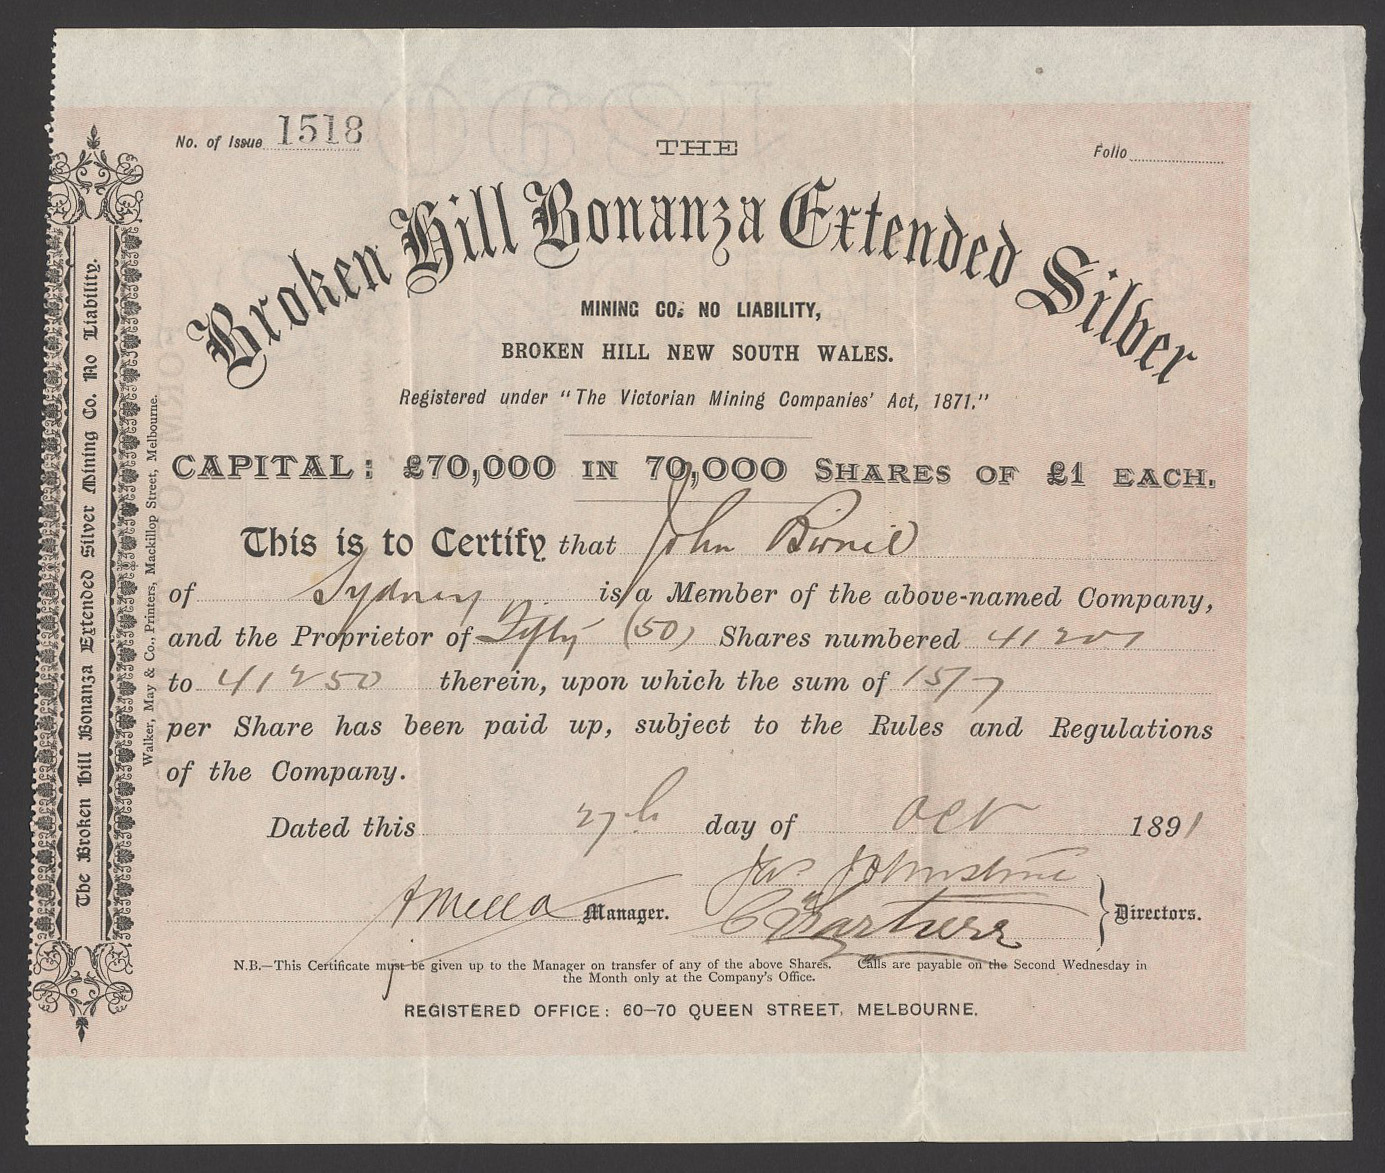 No. of Issue 1518
THE
Folio
Broken Hill Bonanza Extended Silver
MINING CO. NO LIABILITY,
BROKEN HILL NEW SOUTH WALES.
Registered under "The Victorian Mining Companies' Act, 1871."
CAPITAL: £70,000 IN 70,000 SHARES OF £1 EACH.
This is to Certify that John Birnie
of Sydney is a Member of the above-named Company,
and the Proprietor of Fifty (50) Shares numbered 41201
to 41250 therein, upon which the sum of 15/7
per Share has been paid up, subject to the Rules and Regulations
of the Company.
Dated this 27th day of Oct 1891
Jas Johnstone
Manager.
Directors.
N.B.—This Certificate must be given up to the Manager on transfer of any of the above Shares. Calls are payable on the Second Wednesday in
the Month only at the Company's Office.
REGISTERED OFFICE: 60–70 QUEEN STREET, MELBOURNE.
The Broken Hill Bonanza Extended Silver Mining Co. No Liability.
Walker, May & Co., Printers, Mackillop Street, Melbourne.